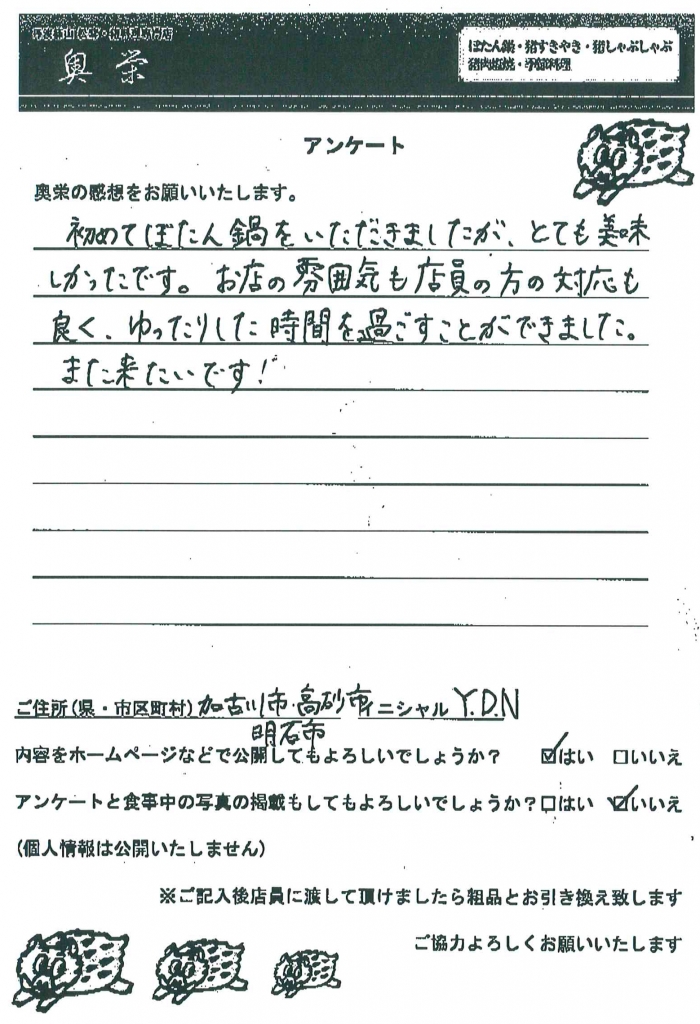 丹波篠山 松茸・猪料理専門店
奥栄
ぼたん鍋・猪すきやき・猪しゃぶしゃぶ
猪肉塩焼・季節料理
アンケート
奥栄の感想をお願いいたします。
初めてぼたん鍋をいただきましたが、とても美味
しかったです。お店の雰囲気も店員の方の対応も
良く、ゆったりした時間を過ごすことができました。
また来たいです！
ご住所(県・市区町村) 加古川市・高砂市 イニシャル Y.D.N
明石市
内容をホームページなどで公開してもよろしいでしょうか? ☑はい □いいえ
アンケートと食事中の写真の掲載もしてもよろしいでしょうか?□はい ☑いいえ
(個人情報は公開いたしません)
※ご記入後店員に渡して頂けましたら粗品とお引き換え致します
ご協力よろしくお願いいたします